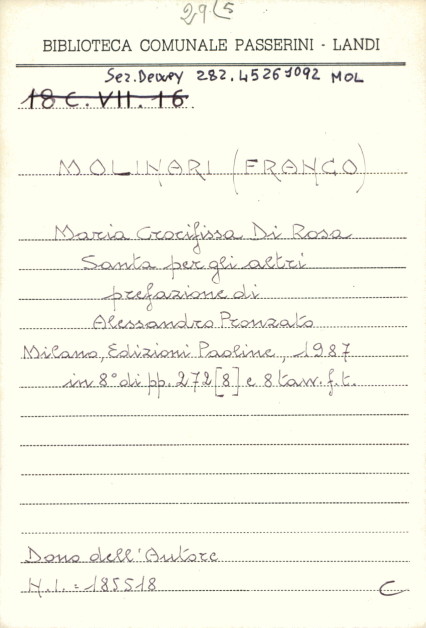 29(5
BIBLIOTECA COMUNALE PASSERINI - LANDI
Sez. Dewey 282.45261092 MOL
18 C. VII. 16
MOLINARI (FRANCO)
Maria Crocifissa Di Rosa
Santa per gli altri
prefazione di
Alessandro Pronzato
Milano, Edizioni Paoline, 1987
in 8° di pp. 272[8] e 8 tavv. f.t.
Dono dell'Autore
N.I. = 185518
C